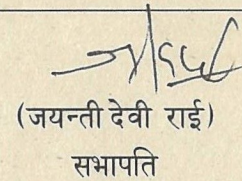 (जयन्ती देवी राई)
सभापति